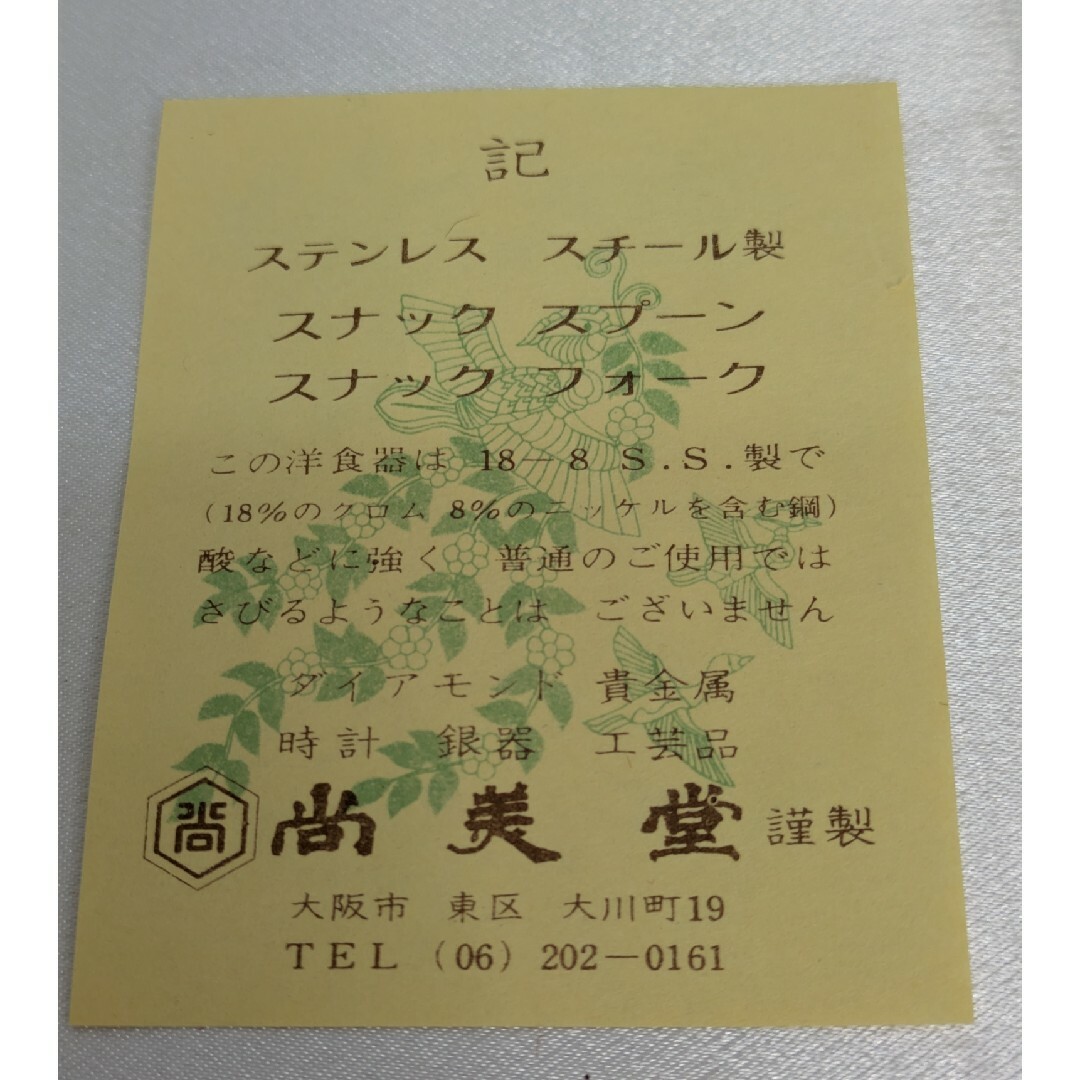 記
ステンレス スチール製
スナック スプーン
スナック フォーク
この洋食器は 18－8 S.S.製で
(18%のクロム 8%のニッケルを含む鋼)
酸などに強く 普通のご使用では
さびるようなことは ございません
ダイアモンド 貴金属
時計 銀器 工芸品
尚 尚美堂 謹製
大阪市 東区 大川町19
TEL (06) 202－0161